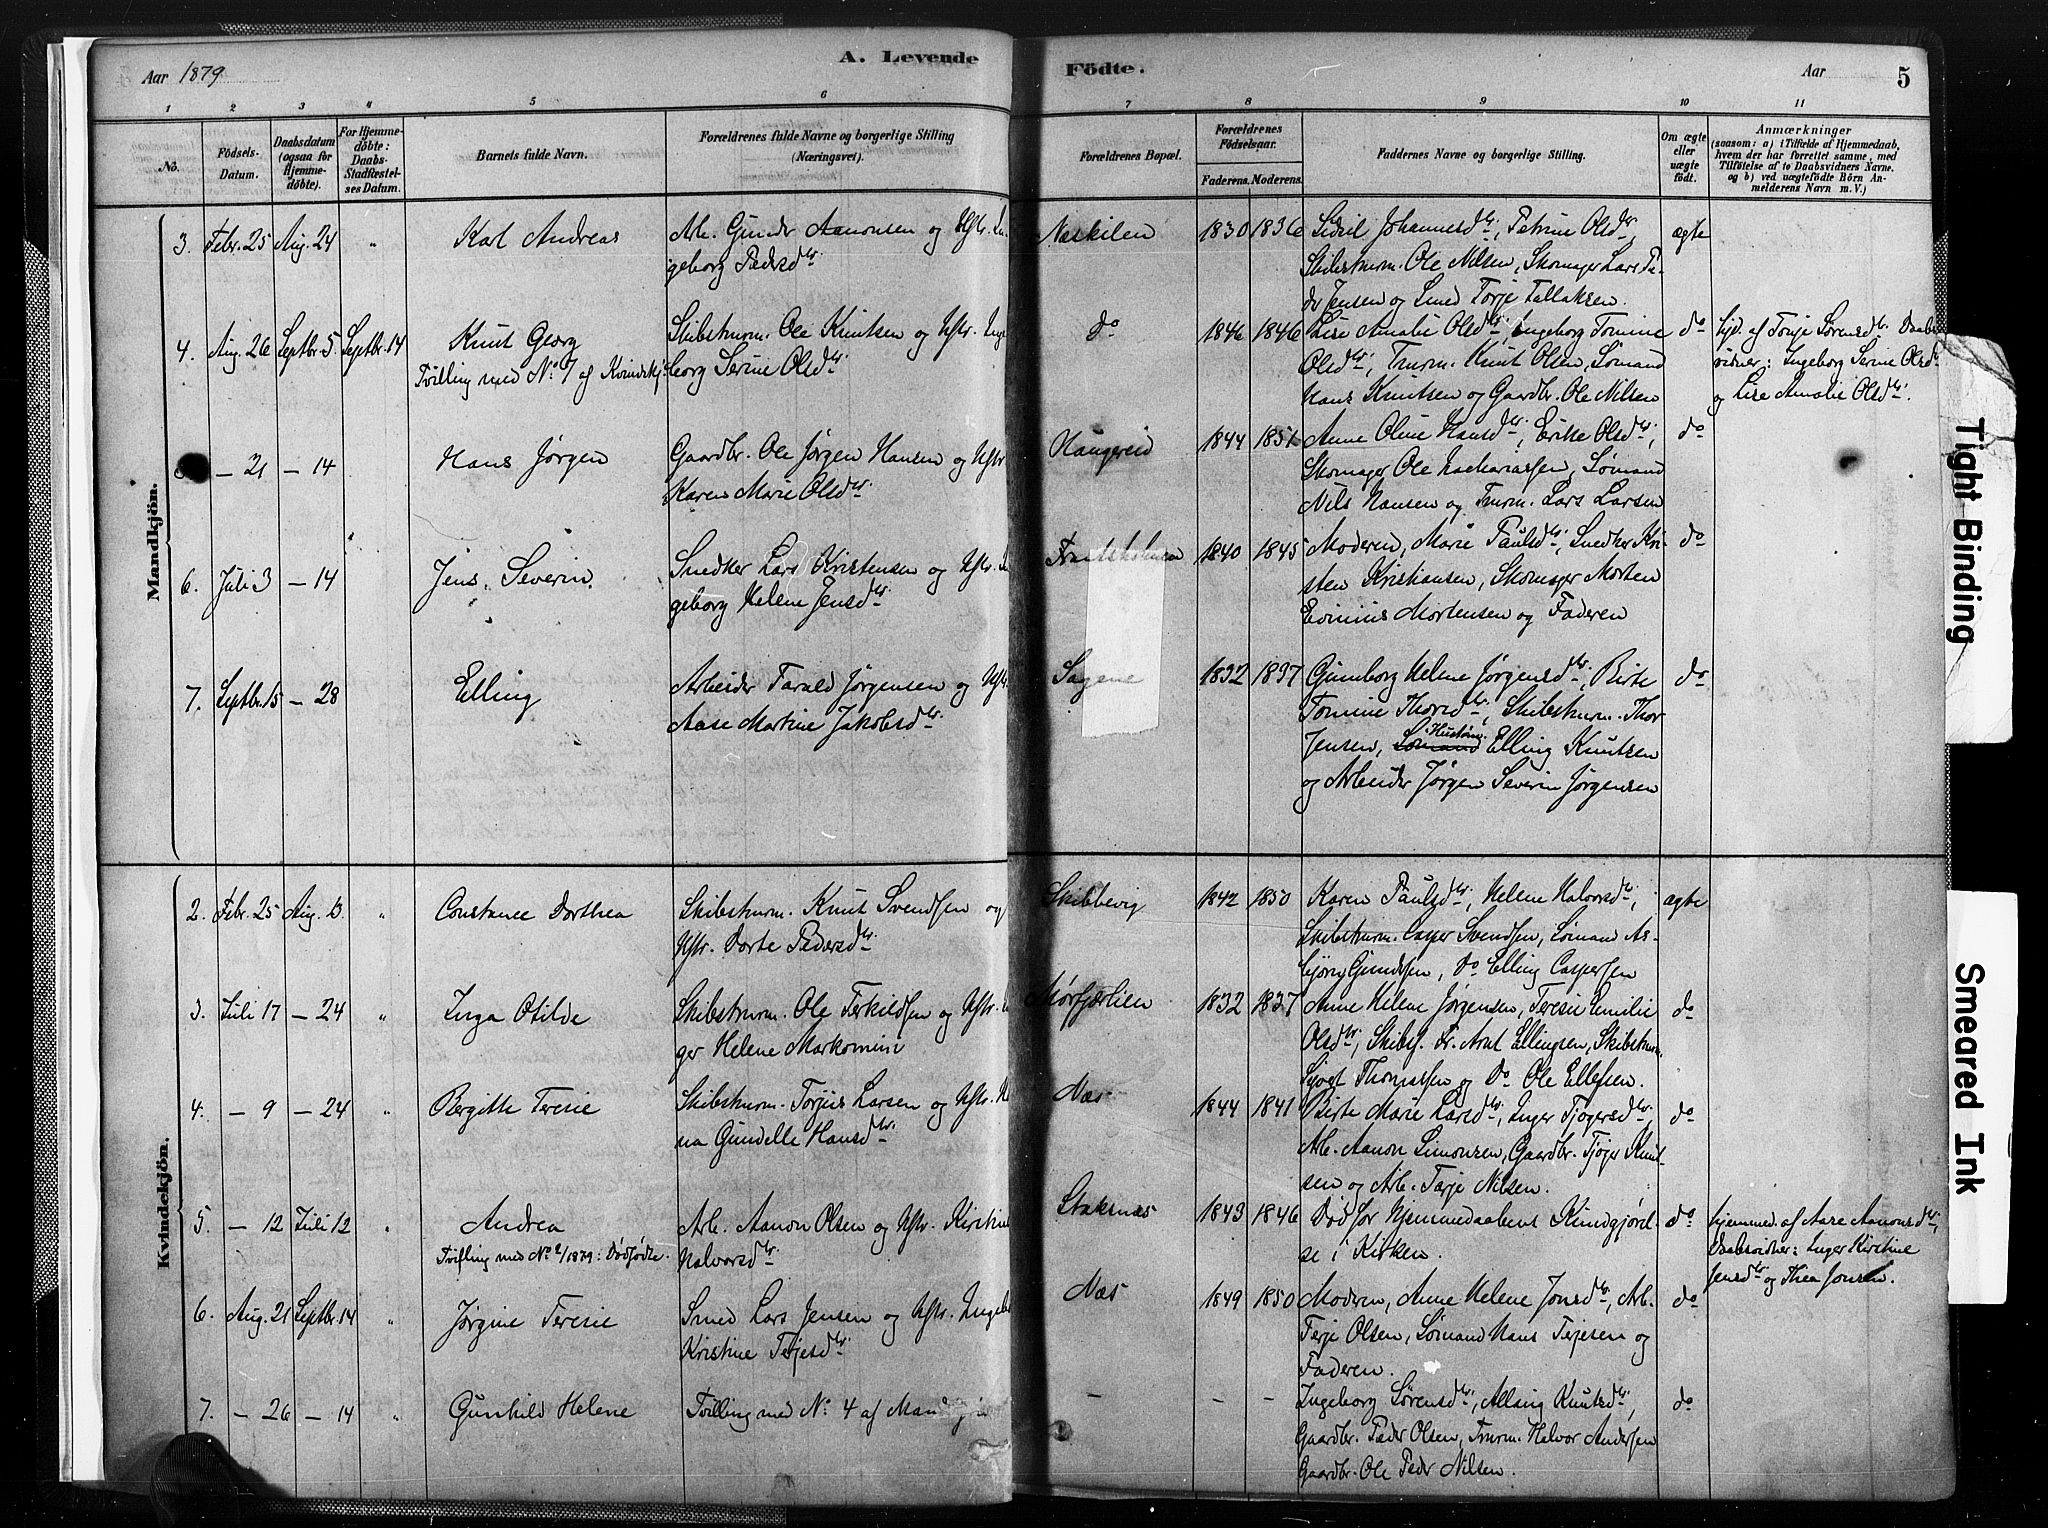 Aar 1879
A. Levende
Födte.
Aar
5
1 2 3 4 5 6 7 8 9 10 11
No.
Födsels-
Datum.
Daabsdatum
(ogsaa for
Hjemme-
döbte).
For Hjemme-
döbte:
Daabs-
Stadfæstel-
ses Datum.
Barnets fulde Navn.
Forældrenes fulde Navne og borgerlige Stilling
(Næringsvei).
Forældrenes Bopæl.
Forældrenes
Födselsaar.
Faderens. Moderens.
Faddernes Navne og borgerlige Stilling.
Om ægte
eller
uægte
födt.
Anmærkninger
(saasom: a) i Tilfælde af Hjemmedaab,
hvem der har forrettet samme, med
Tilföielse af to Daabsvidners Navne.
og b) ved uægtefödte Börn An-
melderens Navn m. V.)
Mandkjön.
3. Febr. 25 Aug. 24 " Karl Andreas
Arb. Gunder Aanonsen og Hstr. In-
geborg Pedersdtr.
Næskilen 1830 1836
Sidsel Johannesdtr., Petrine Olsdtr.,
Skibstmrm. Ole Nilsen, Skomager Lars Pe-
der Jensen og Smed Terje Tallaksen.
ægte
4. Aug. 26 Septbr. 5 Septbr. 14 Knut Georg
Tvilling med No 7 af Kvindekj.
Skibstmrm. Ole Knutsen og Hstr. Inge-
borg Serine Olsdtr.
do 1846 1846
Lise Amalie Olsdtr., Ingeborg Tomine
Olsdtr., Tmrm. Knut Olsen, Sømand
Hans Knutsen og Gaardbr. Ole Nilsen
do
Hjd. af Tonje Sørensdtr. Daabs-
vidner: Ingeborg Serine Olsdtr.
og Lise Amalie Olsdtr.
5. — 21 — 14 Hans Jørgen
Gaardbr. Ole Jørgen Hansen og Hstr.
Karen Marie Olsdtr.
Haugereid 1844 1851
Anne Oline Hansdtr., Erike Olsdtr.,
Skomager Ole Zachariassen, Sømand
Nils Hansen og Tmrm. Lars Larsen
do
6. Juli 3 — 14 Jens Severin
Snedker Lars Kristensen og Hstr. In-
geborg Helene Jensdtr.
1840 1845
Moderen, Marie Paulsdtr., Snedker Kri-
sten Kristiansen, Skomager Morten
Mortensen og Faderen
do
7. Septbr. 15 — 28 Elling
Arbeider Tarald Jørgensen og Hstr.
Aase Martine Jakobsdtr.
Sagene 1832 1837
Gunborg Helene Jørgensdtr., Birte
Tomine Thorsdtr., Skibstmrm. Thor
Jensen, Sømand Hustømr. Elling Knutsen
og Arbeider Jørgen Severin Jørgensen
do
Kvindekjön.
2. Febr. 25 Aug. 10 " Constance Dorthea
Skibstmrm. Knut Svendsen og
Hstr. Dorte Pedersdtr.
Skibbevig 1842 1850
Karen Paulsdtr., Helene Halvorsdtr.,
Skibstmrm. Casper Svendsen, Sømand As-
bjørn Gundersen, do Elling Caspersen
ægte
3. Juli 17 — 24 " Inga Otilde
Skibstmrm. Ole Terkildsen og Hstr. In-
ger Helene Markomine
Mørfjærlien 1832 1837
Anne Helene Jørgensen, Teresie Emilie
Olsdtr., Skibsf. Fr. Arnt Ellingsen, Skibstmrm.
Thomassen og do Ole Ellefsen.
do
4. — 9 — 24 " Bergitte Teresie
Skibstmrm. Torjus Larsen og Hstr.
na Gundelle Hansdtr.
Næs 1844 1841
Birte Marie Larsdtr., Inger Tjøgersdtr.,
Arb. Aanon Simonsen, Gaardbr. Tjøger Knut-
sen og Arb. Terje Nilsen.
do
5. — 12 Juli 12 " Andrea
Tvilling med No 2/1879: Dødfødte.
Arb. Aanon Olsen og Hstr. Kirstine
Halvorsdtr.
Staksnæs 1843 1846
Død før Hjemmedaabens Kundgjørel-
se i Kirken.
do
Hjemmed. af Aase Aanonsdtr.,
Daabsvidner: Inger Kirstine
Jensdtr. og Thea Jonsen.
6. Aug. 21 Septbr. 14 " Jørgine Teresie
Smed Lars Jensen og Hstr. Ingeb.
Kristine Terjesdtr.
Næs 1849 1850
Moderen, Anne Helene Jonsdtr., Arb.
Terje Olsen, Sømand Hans Terjesen og
Faderen.
do
7. — 26 — 14 " Gunhild Helene
Tvilling med No 4 af Mandkjøn
— — —
Ingeborg Sørensdtr., Knutsdtr.,
Gaardbr. Peder Olsen, Tmrm. Halvor Andersen
Gaardbr. Ole Peder Nilsen.
do
Tight Binding
Smeared Ink